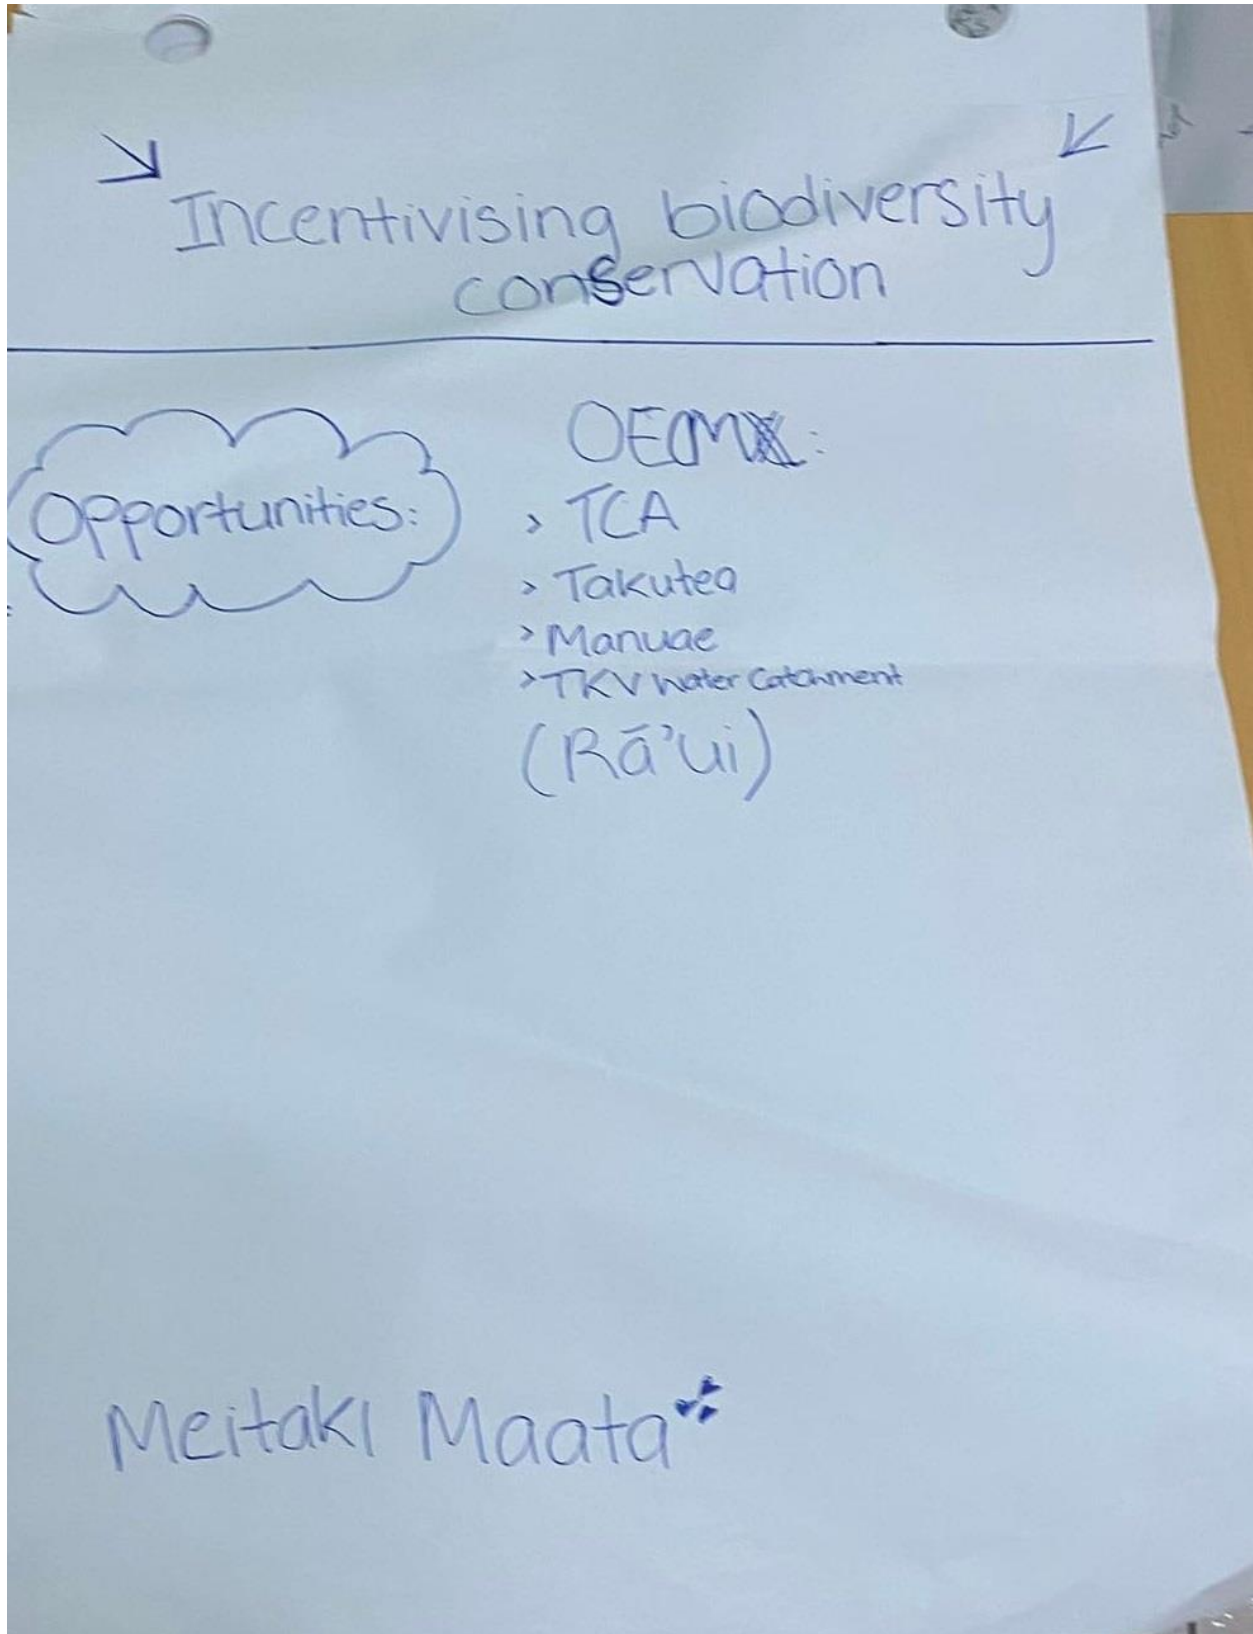 Incentivising biodiversity
conservation
Opportunities:
OECM:
> TCA
> Takutea
> Manuae
> TKV Water Catchment
(Rā'ui)
Meitaki Maata